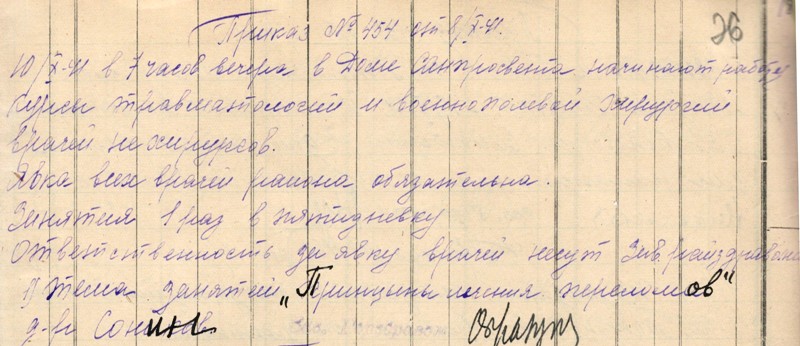 26
Приказ № 454 от 8/X-41.
10/X-41 в 7 часов вечера в Доме Санпросвета начинают работу
курсы травматологии и военнополевой хирургии
врачей не хирургов.
Явка всех врачей района обязательна.
Занятия 1 раз в пятидневку
Ответственность за явку врачей несут Зав. райздравами
1) тема занятий „Принципы лечения переломов"
д-р